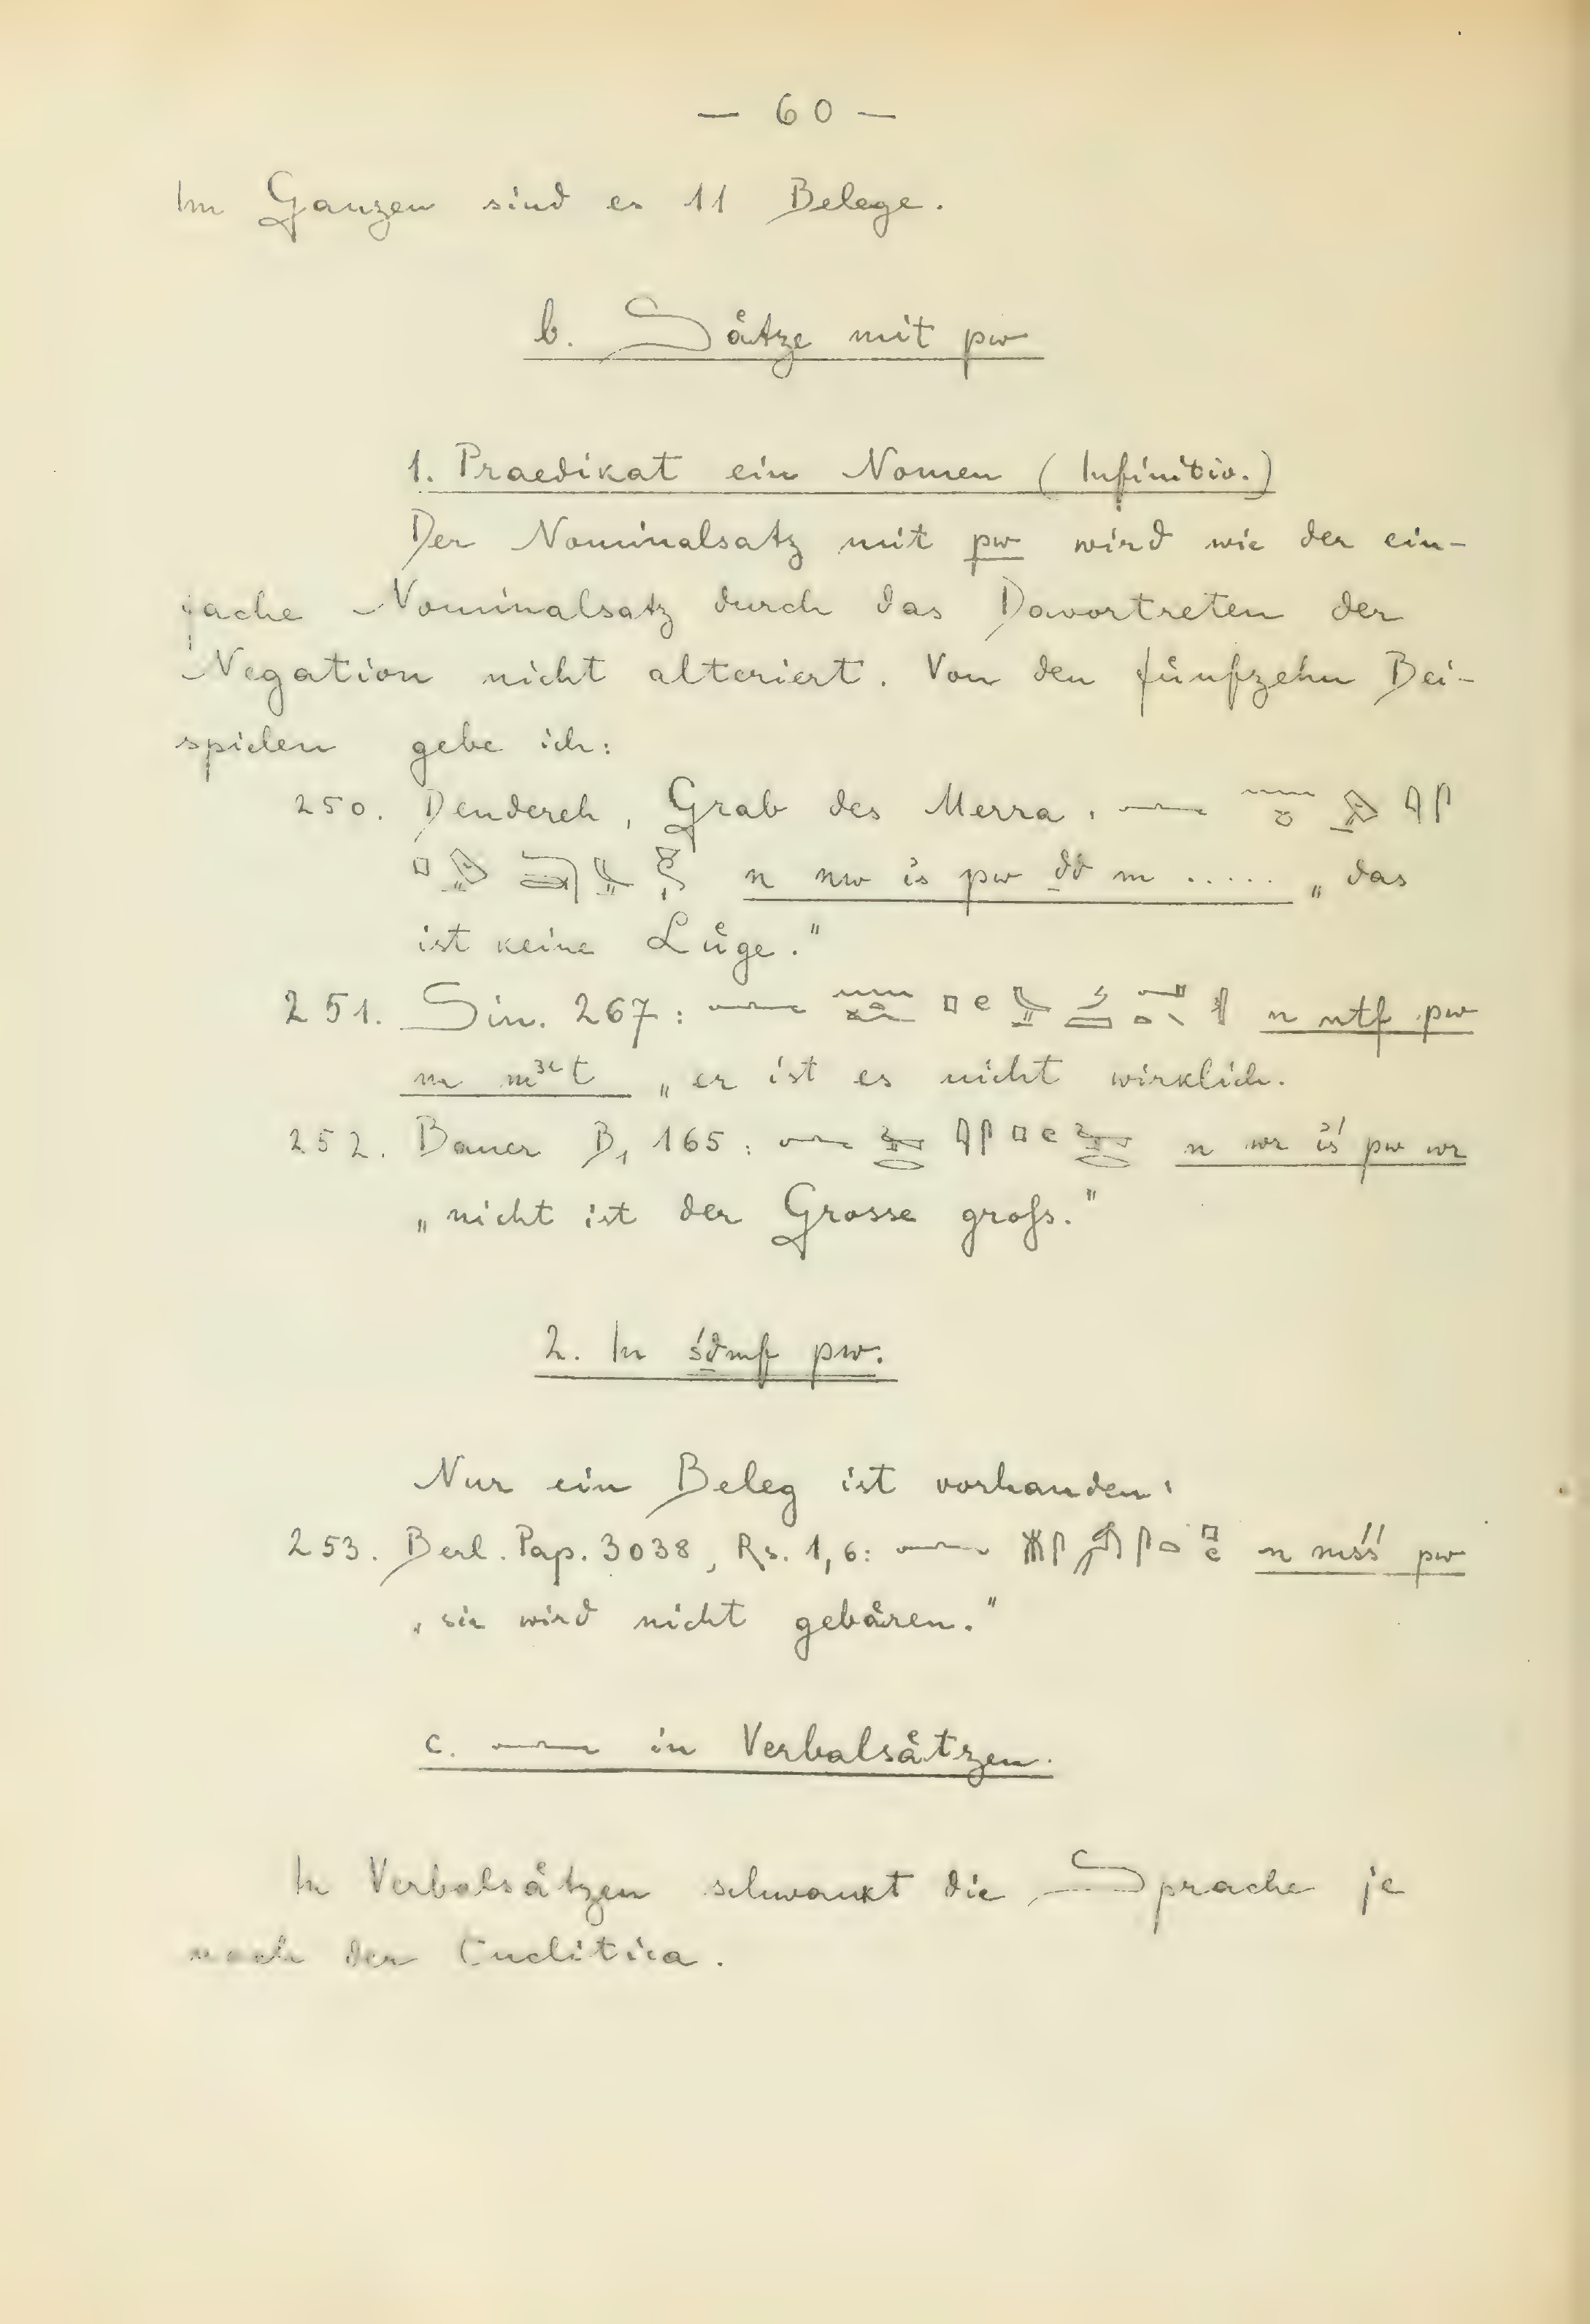 — 60 —
Im Ganzen sind es 11 Belege.
b. Sätze mit pw
1. Praedikat ein Nomen (Infinitiv.)
Der Nominalsatz mit pw wird wie der ein-
fache Nominalsatz durch das Davortreten der
Negation nicht alteriert. Von den fünfzehn Bei-
spielen gebe ich:
250. Dendereh, Grab des Merra:
n nw is pw ḏd m ..... „das
ist keine Lüge."
251. Sin. 267: n ntf pw
m mꜣꜥt „er ist es nicht wirklich.
252. Bauer B₁ 165: n wr iś pw wr
„nicht ist der Grosse groß."
2. In śḏmf pw.
Nur ein Beleg ist vorhanden:
253. Berl. Pap. 3038, Rs. 1,6: n mśś pw
„sie wird nicht gebären."
c. 𓂜 in Verbalsätzen.
In Verbalsätzen schwankt die Sprache je
nach der Enclitica.